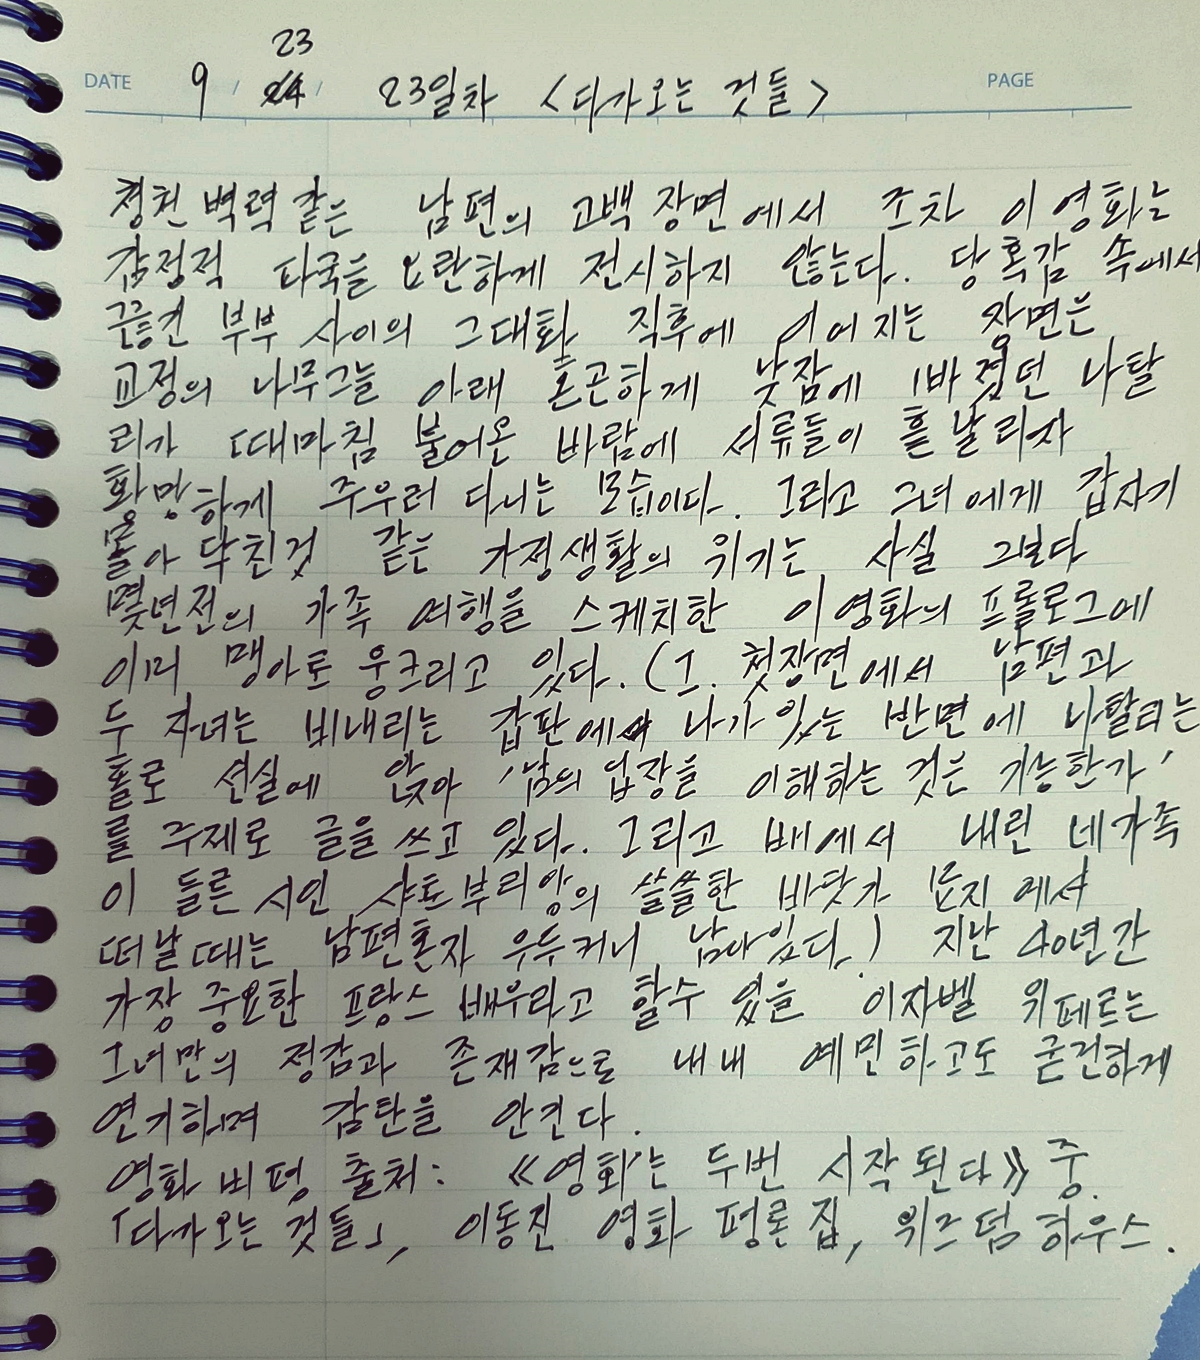 23
DATE 9 / 24 / 23일차 <다가오는 것들> PAGE
청천벽력같은 남편의 고백장면에서 조차 이 영화는
감정적 파국을 요란하게 전시하지 않는다. 당혹감 속에서
끊긴 부부 사이의 그 대화 직후에 이어지는 장면은
교정의 나무그늘 아래 혼곤하게 낮잠에 빠졌던 나탈
리가 때마침 불어온 바람에 서류들이 흩날리자
황망하게 주우러 다니는 모습이다. 그리고 그녀에게 갑자기
몰아닥친것 같은 가정생활의 위기는 사실 그보다
몇년전의 가족 여행을 스케치한 이 영화의 프롤로그에
이미 맹아로 웅크리고 있다. (그 첫장면에서 남편과
두 자녀는 비내리는 갑판에 나가있는 반면에 나탈리는
홀로 선실에 앉아 '남의 입장을 이해하는 것은 가능한가'
를 주제로 글을 쓰고 있다. 그리고 배에서 내린 네가족
이 들른 시인 샤토부리앙의 쓸쓸한 바닷가 묘지에서
떠날때는 남편혼자 우두커니 남아있다.) 지난 40년간
가장 중요한 프랑스 배우라고 할수 있을 이자벨 위페르는
그녀만의 정감과 존재감으로 내내 예민하고도 굳건하게
연기하며 감탄을 안긴다.
영화 비평 출처: 《영화는 두번 시작된다》 중.
「다가오는 것들」, 이동진 영화 평론집, 위즈덤하우스.